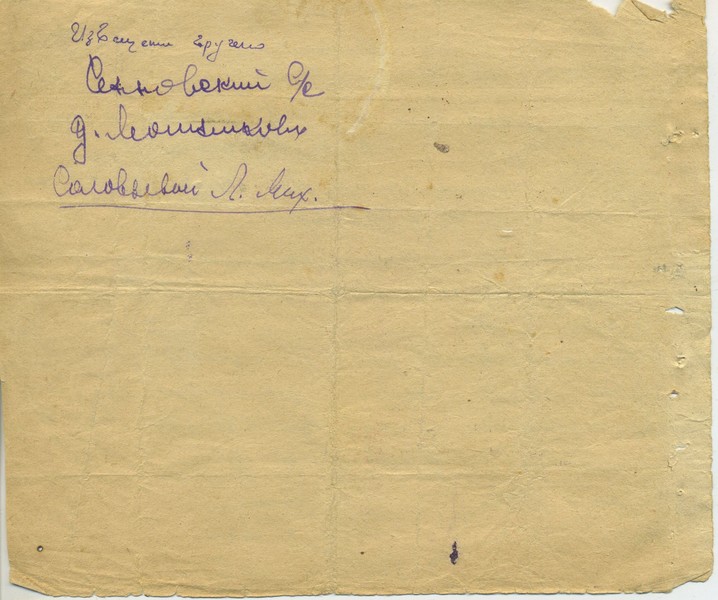 Извещен вручено
Сенновский С/с
д.
Соловьевой Л. Мих.